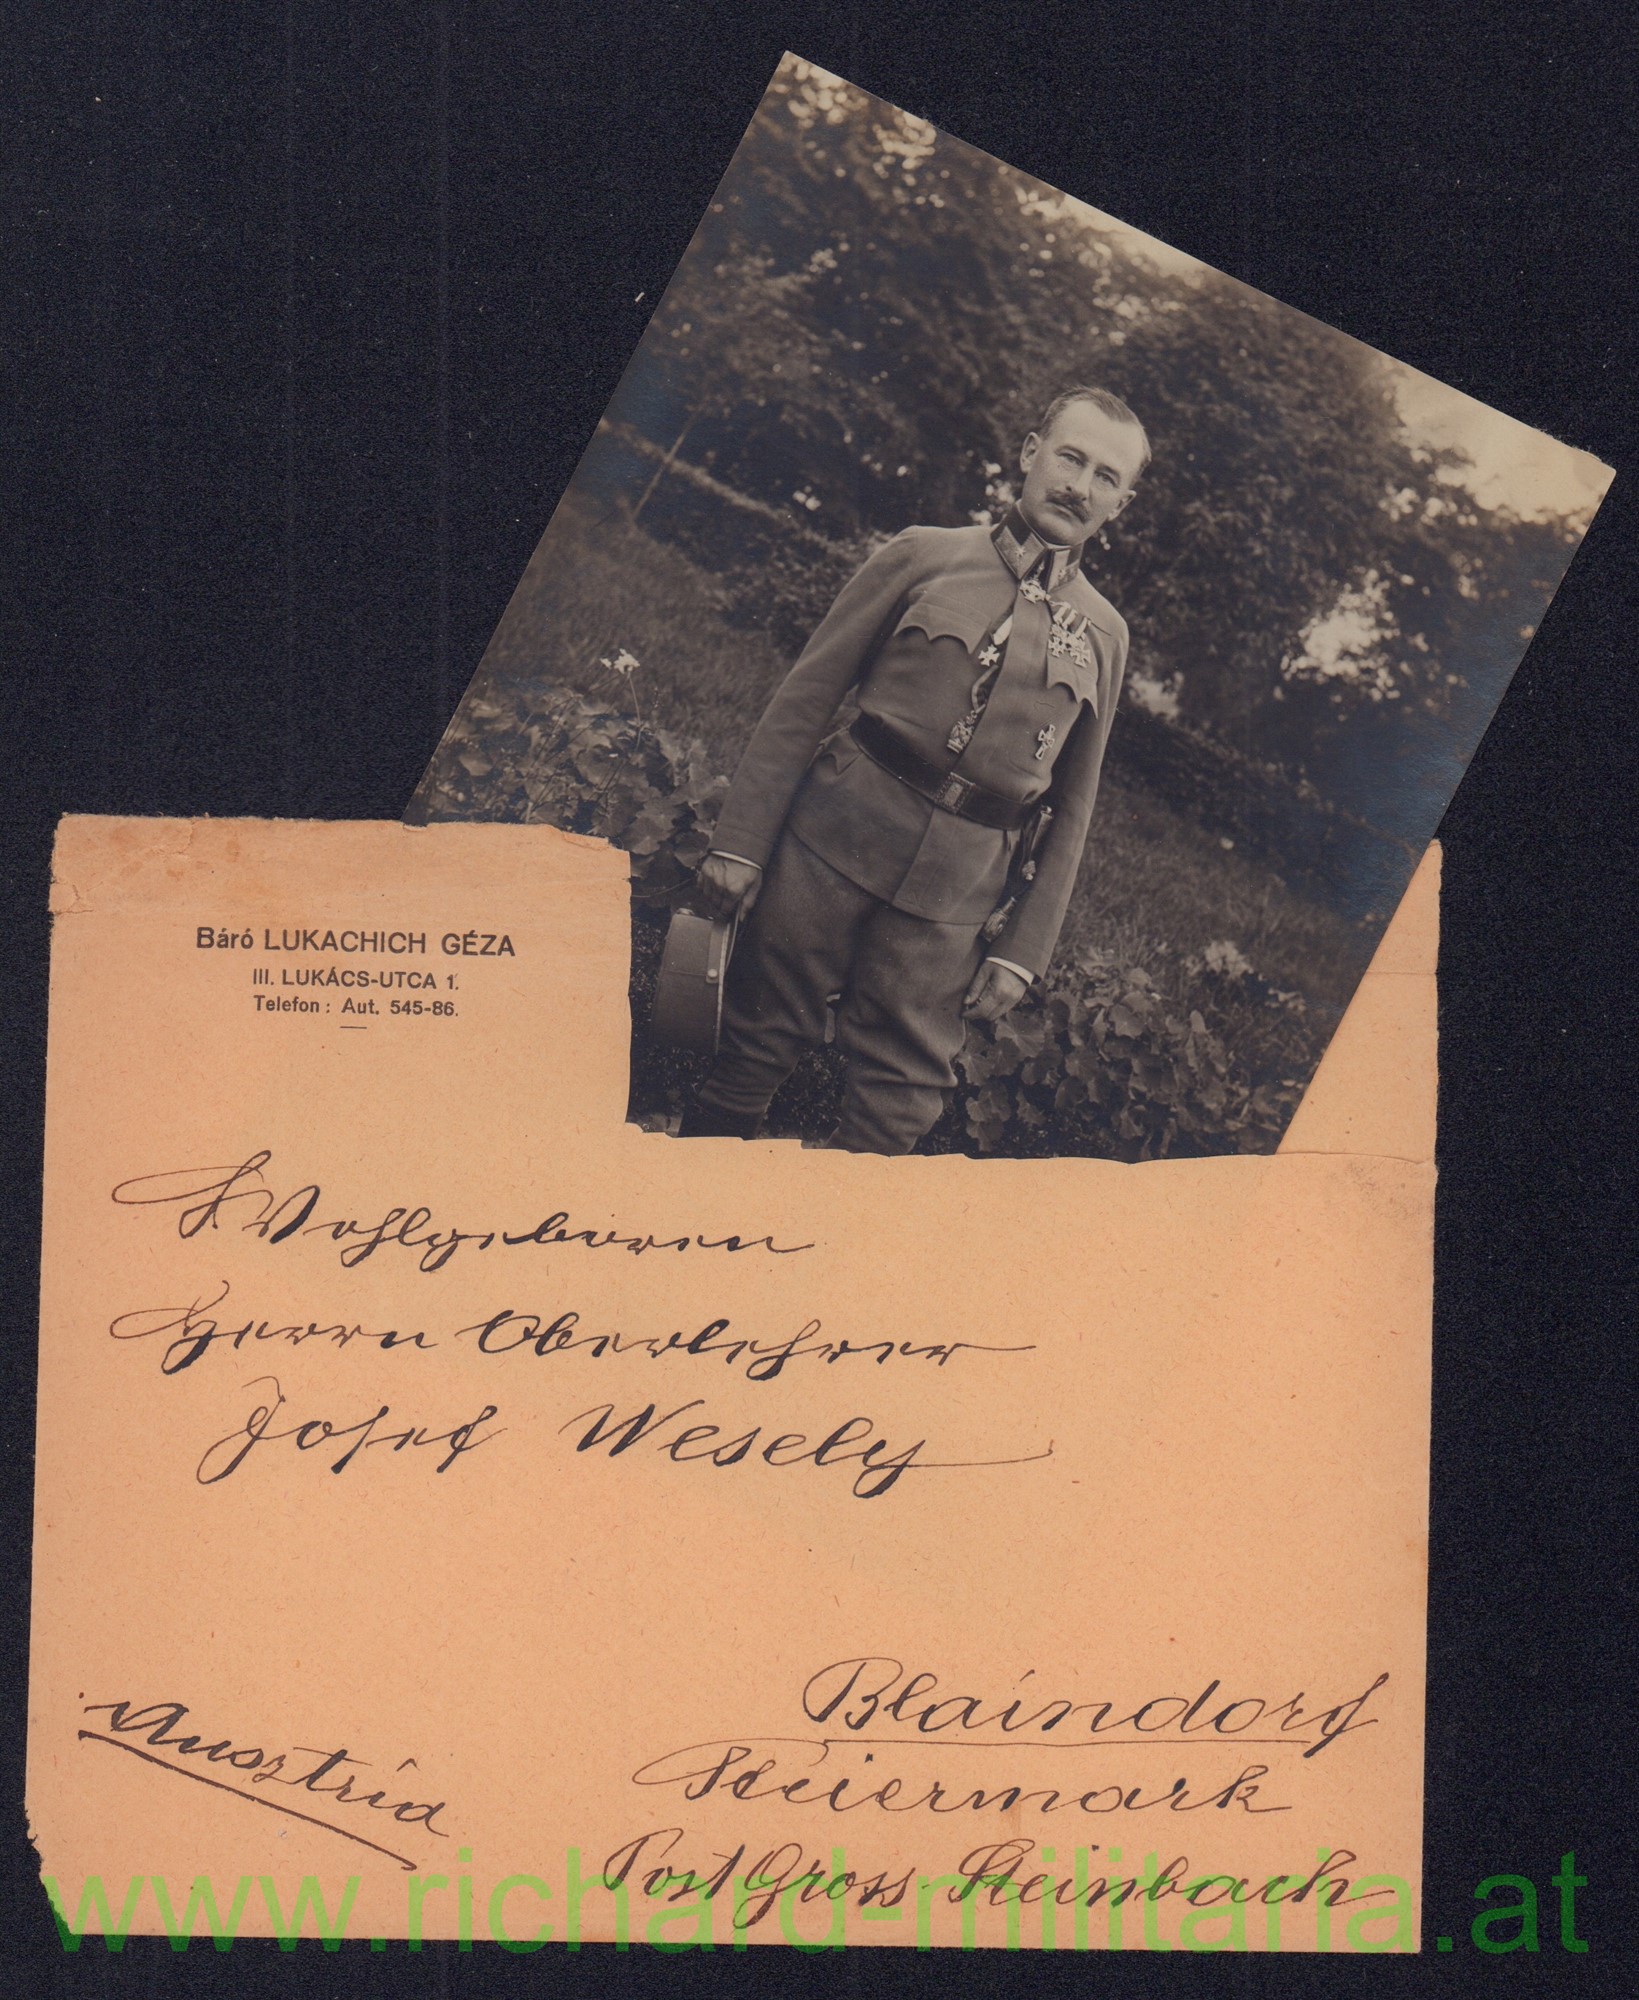 Báró LUKACHICH GÉZA
III. LUKÁCS-UTCA 1.
Telefon: Aut. 545-86.
Wohlgeboren
Herrn Oberlehrer
Josef Wesely
Blaindorf
Steiermark
Post Gross Steinbach
Ausztria
www.richard-militaria.at